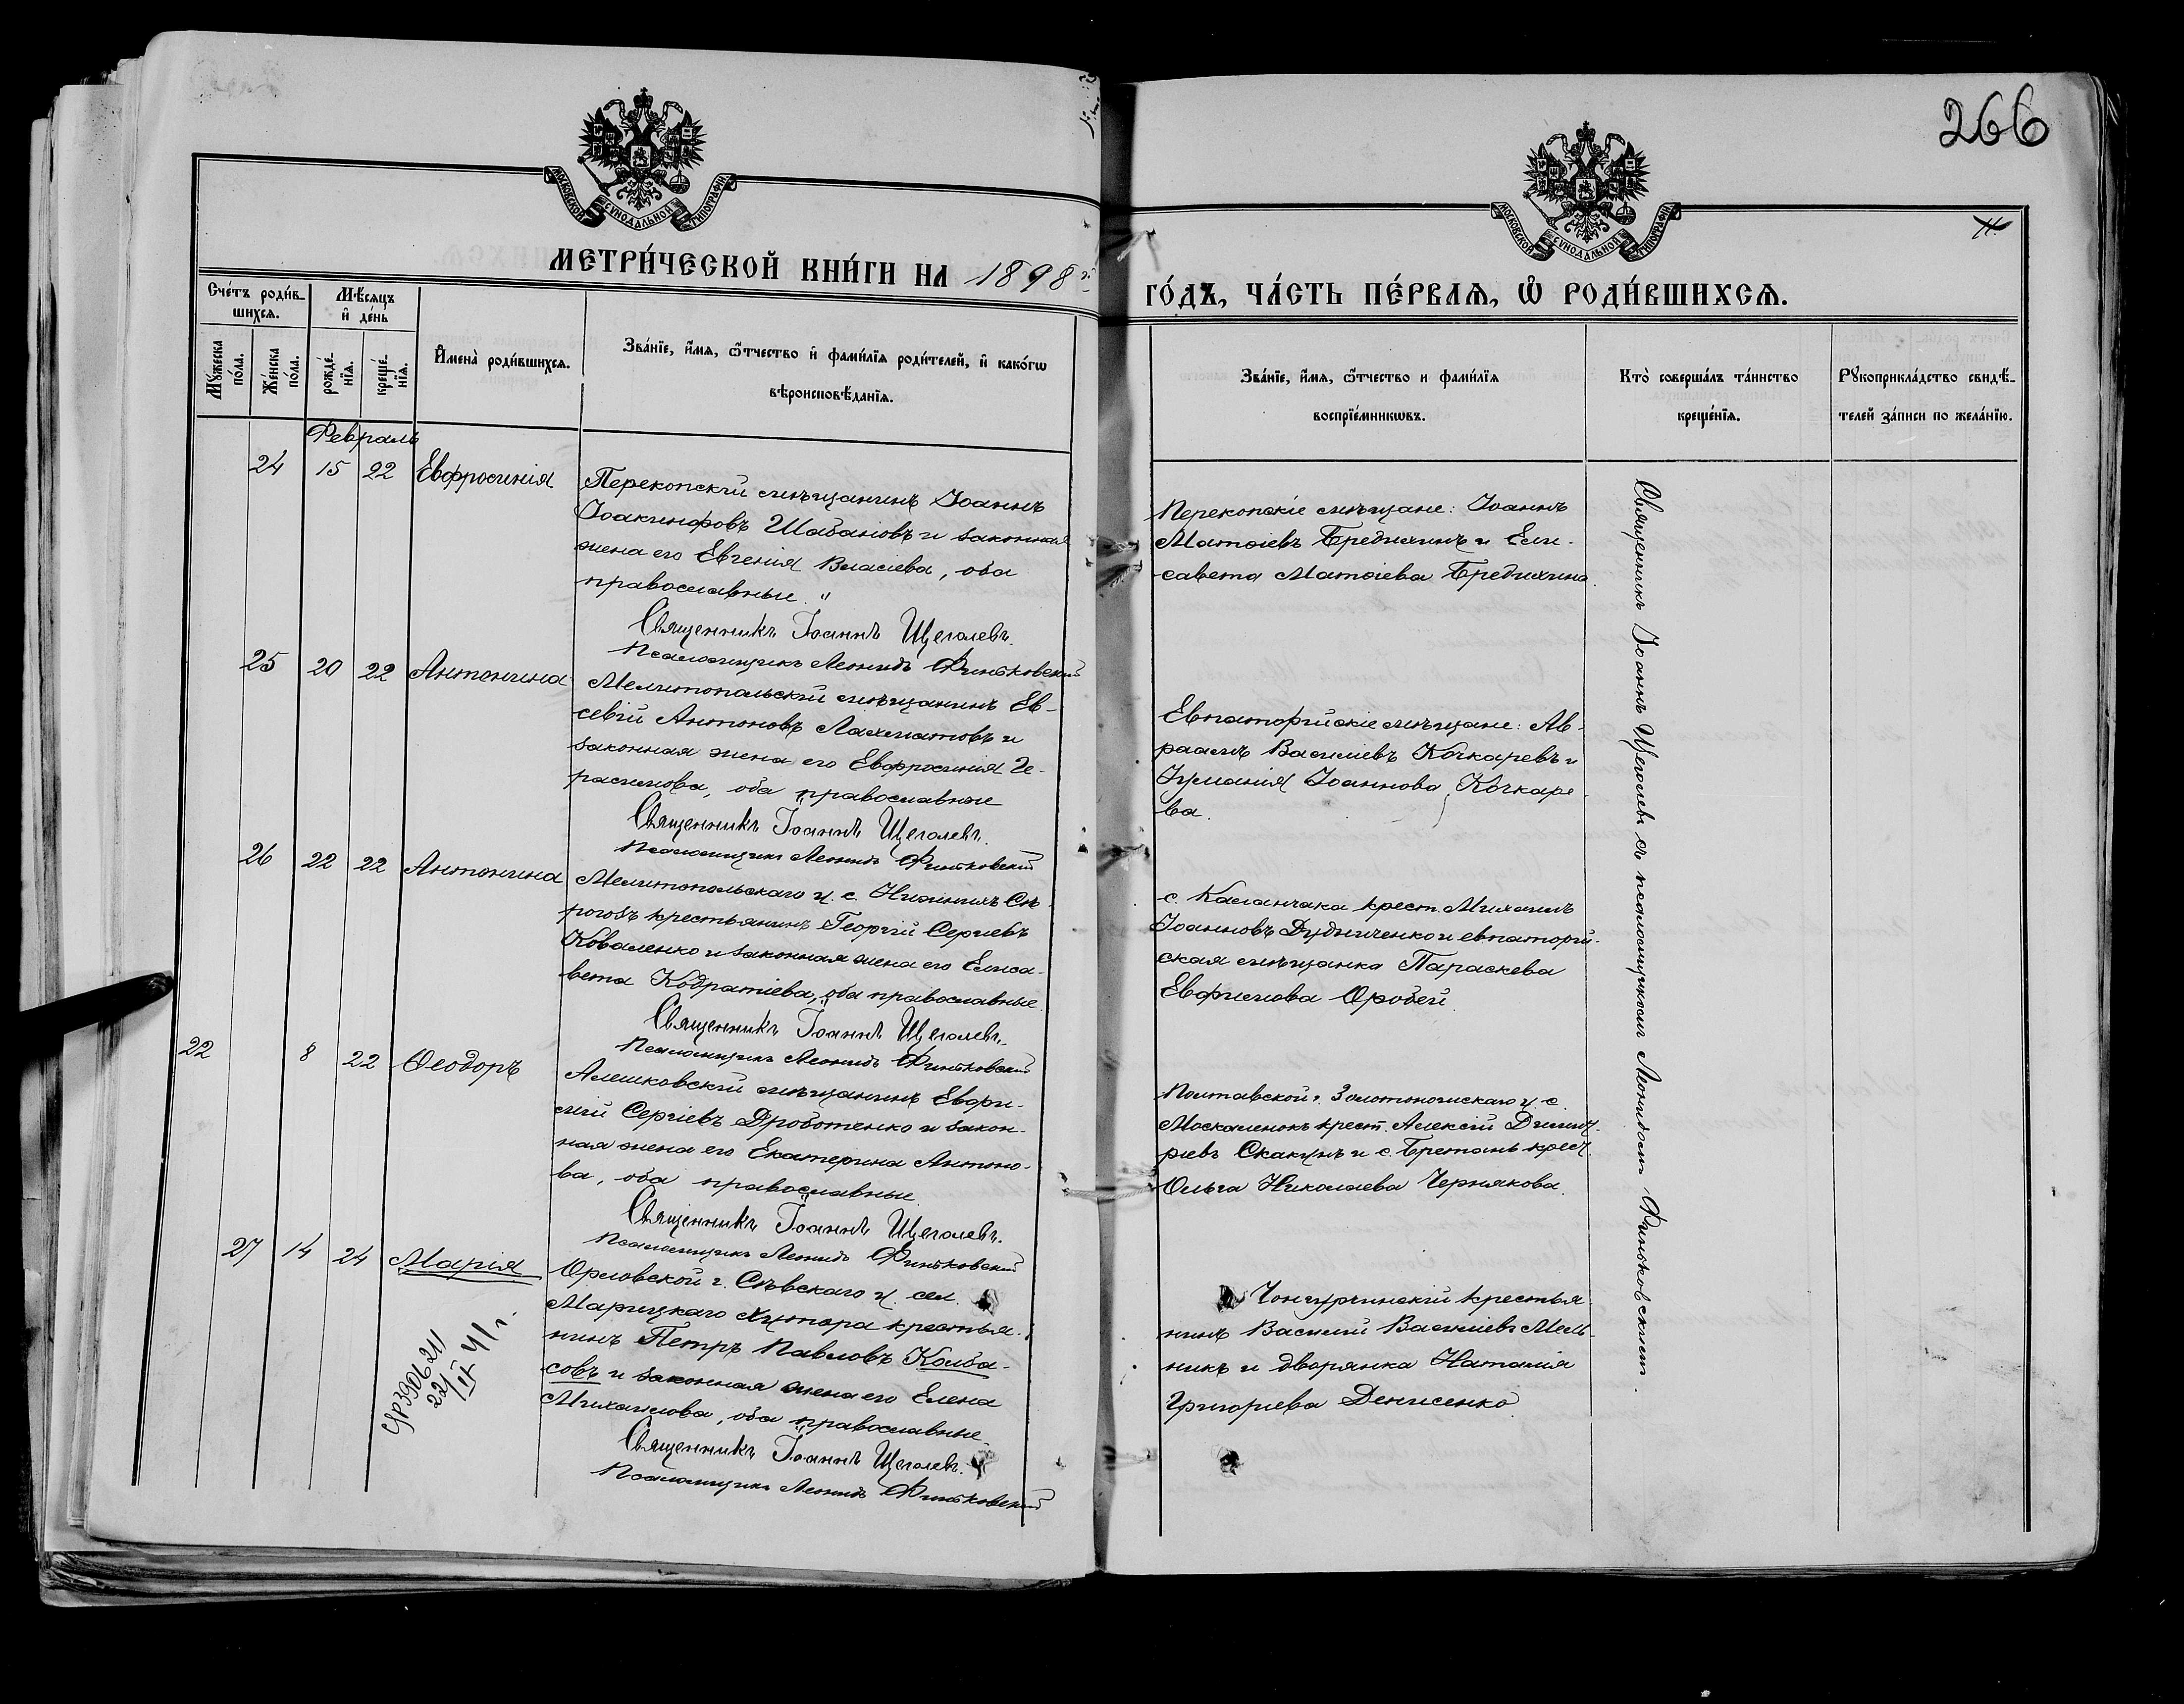 266
МОСКОВСКОЙ СУНОДАЛЬНОЙ ТИПОГРАФІИ
МОСКОВСКОЙ СУНОДАЛЬНОЙ ТИПОГРАФІИ
МЕТРИ́ЧЕСКОЙ КНИ́ГИ НА 1898
ГО́ДЪ, ЧА́СТЬ ПЕ́РВАЯ, Ѡ҆ РОДИ́ВШИХСЯ.
Сче́тъ роди́в-
шихся.
Мѣ́сяцъ
и҆ де́нь
Мꙋ́жеска
по́ла.
Же́нска
по́ла.
рожде́-
нїя.
креще́-
нїя.
И҆мена̀ роди́вшихся.
Зва́нїе, и҆́мя, ѻ҆́тчество и҆ фами́лїя роди́телей, и҆ како́гѡ
вѣроисповѣ́данїя.
Зва́нїе, и҆́мя, ѻ҆́тчество и фами́лїя
воспрїе́мникѡвъ.
Кто̀ соверша́лъ та́инство
креще́нїя.
Рꙋкоприкла́дство свидѣ́-
телей за́писи по жела́нїю.
Февраль
24 15 22 Евфросинія
Перекопскій мѣщанинъ Іоаннъ
Іоакинфовъ Шабановъ и законная
жена его Евгенія Власіева, оба
православные.
Священникъ Іоаннъ Щеголевъ.
Псаломщикъ Леонидъ Финьковскій
Перекопскіе мѣщане: Іоаннъ
Матѳіевъ Бредихинъ и Ели-
савета Матѳіева Бредихина.
25 20 22 Антонина
Мелитопольскій мѣщанинъ Ев-
севій Антоновъ Лахматовъ и
законная жена его Евфросинія Ге-
расимова, оба православные
Священникъ Іоаннъ Щеголевъ.
Псаломщикъ Леонидъ Финьковскій
Евпаторійскіе мѣщане: Ав-
раамъ Василіевъ Кочкаревъ и
Іуліанія Іоаннова Кочкаре-
ва.
26 22 22 Антонина
Мелитопольскаго у. с. Нижнихъ Сѣ-
рогозъ крестьянинъ Георгій Сергіевъ
Коваленко и законная жена его Елиса-
вета Кодратіева, оба православные.
Священникъ Іоаннъ Щеголевъ.
Псаломщикъ Леонидъ Финьковскій
с. Каланчака крест. Михаилъ
Іоанновъ Дудниченко и евпаторій-
ская мѣщанка Параскева
Евфимова Оробей.
22 8 22 Ѳеодоръ
Алешковскій мѣщанинъ Евфи-
мій Сергіевъ Дроботенко и закон-
ная жена его Екатерина Антоно-
ва, оба православные
Священникъ Іоаннъ Щеголевъ.
Псаломщикъ Леонидъ Финьковскій
Полтавской г. Золотоношскаго у. с.
Москаленокъ крест. Алексій Димит-
ріевъ Скакунъ и с. Бретань крест.
Ольга Николаева Чернякова.
27 14 24 Марія
Орловской г. Сѣвскаго у. сел.
Марицкаго хутора крестья-
нинъ Петръ Павловъ Колба-
совъ и законная жена его Елена
Михаилова, оба православные.
Священникъ Іоаннъ Щеголевъ.
Псаломщикъ Леонидъ Финьковскій
Чонгурчинскій крестья-
нинъ Василій Василіевъ Мель-
никъ и дворянка Наталія
Григоріева Денисенко.
Священникъ Іоаннъ Щеголевъ съ псаломщикомъ Леонидомъ Финьковскимъ.